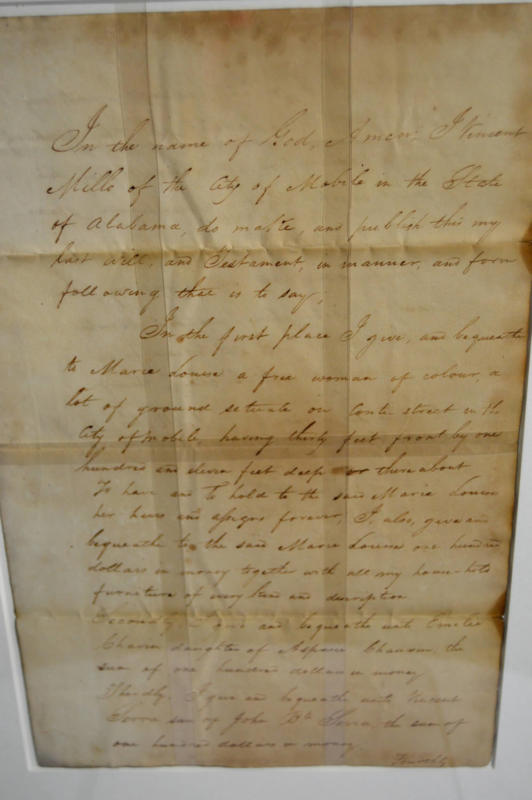 In the name of God, Amen. I Vincent
Mills of the City of Mobile in the State
of Alabama, do make, and publish this my
last will, and Testament, in manner, and form
following that is to say,
In the first place I give, and bequeathe
to Marie Louise a free woman of colour, a
lot of ground setuate on Conti street in the
City of Mobile, having thirty feet front by one
hundred and eleven feet deep or thereabout
To have and to hold to the said Marie Louise
her heirs and assigns forever, I, also, give and
bequeathe to the said Marie Louise one hundred
dollars in money together with all my house-hold
furniture of every kind and description
Secondly, I give and bequeathe unto
daughter of the
sum of one hundred dollars in money
Thirdly, I give and bequeathe unto Vincent
son of John the sum of
one hundred dollars in money
Fourthly